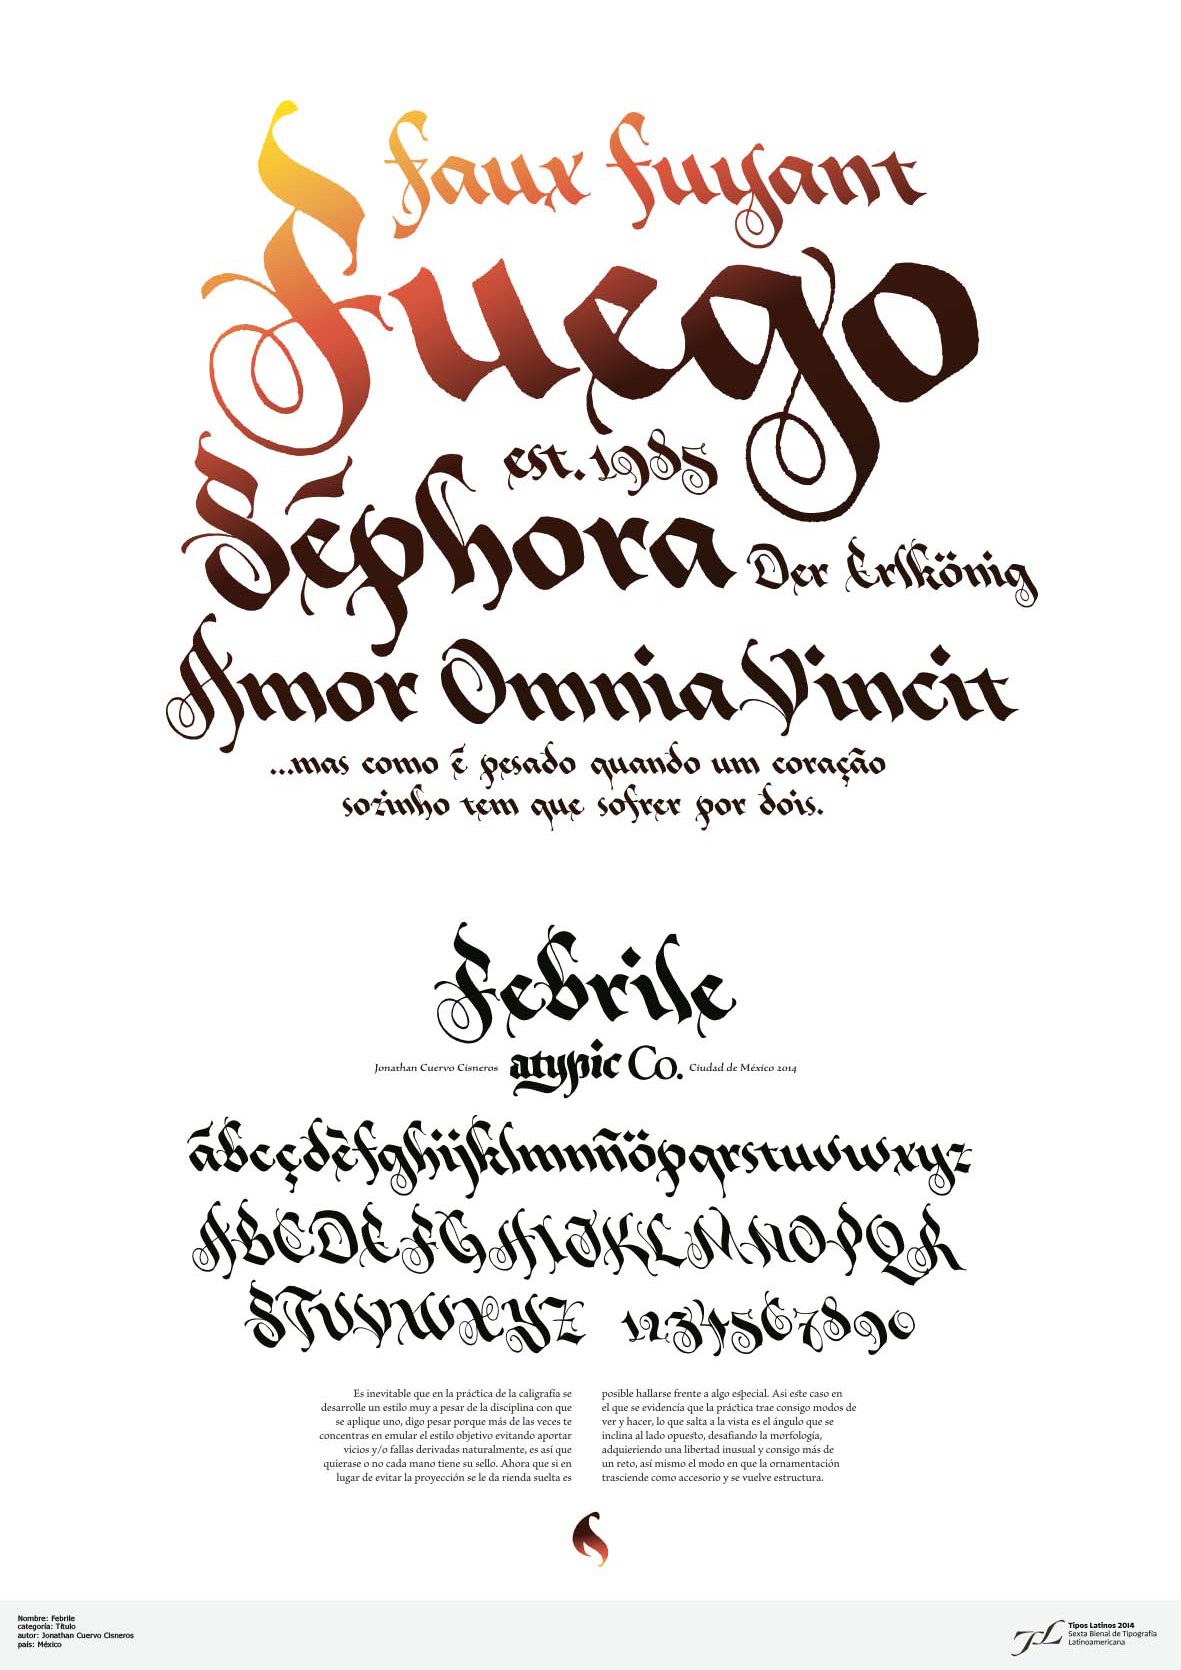 faux fuyant
Fuego
est. 1985
Séphora
Der Erlkönig
Amor Omnia Vincit
...mas como é pesado quando um coração
sozinho tem que sofrer por dois.
Febrile
Jonathan Cuervo Cisneros atypic Co. Ciudad de México 2014
ábcçdèfghijklmnñöpqrstuvwxyz
ABCDEFGHIJKLMNOPQR
STUVWXYZ 1234567890
Es inevitable que en la práctica de la caligrafía se
desarrolle un estilo muy a pesar de la disciplina con que
se aplique uno, digo pesar porque más de las veces te
concentras en emular el estilo objetivo evitando aportar
vicios y/o fallas derivadas naturalmente, es así que
quierase o no cada mano tiene su sello. Ahora que si en
lugar de evitar la proyección se le da rienda suelta es
posible hallarse frente a algo especial. Asi este caso en
el que se evidencía que la práctica trae consigo modos de
ver y hacer, lo que salta a la vista es el ángulo que se
inclina al lado opuesto, desafiando la morfología,
adquieriendo una libertad inusual y consigo más de
un reto, así mismo el modo en que la ornamentación
trasciende como accesorio y se vuelve estructura.
Nombre: Febrile
categoría: Título
autor: Jonathan Cuervo Cisneros
país: México
TL
Tipos Latinos 2014
Sexta Bienal de Tipografía
Latinoamericana